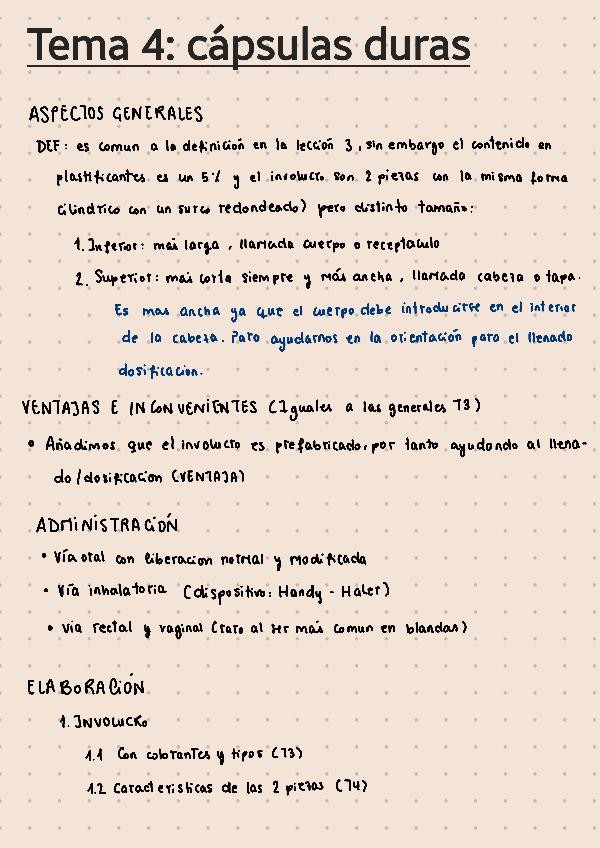 Tema 4: cápsulas duras
ASPECTOS GENERALES
DEF: es comun a la definición en la lección 3, sin embargo el contenido en
plastificantes es un 5% y el involucro son 2 piezas con la misma forma
cilíndrico con un surco redondeado) pero distinto tamaño:
1. Inferior: mas larga, llamada cuerpo o receptaculo
2. Superior: mas corta siempre y más ancha, llamada cabeza o tapa.
Es mas ancha ya que el cuerpo debe introducirse en el interior
de la cabeza. Para ayudarnos en la orientación para el llenado
dosificación.
VENTAJAS E INCONVENIENTES (Iguales a las generales T3)
• Añadimos que el involucro es prefabricado, por tanto ayudando al llena-
do/dosificación (VENTAJA)
ADMINISTRACIÓN
• Vía oral con liberacion normal y modificada
• Vía inhalatoria (dispositivo: Handy-Haler)
• via rectal y vaginal (raro al ser más comun en blandas)
ELABORACIÓN
1. INVOLUCRO
1.1 Con colorantes y tipos (T3)
1.2 Características de las 2 piezas (T4)